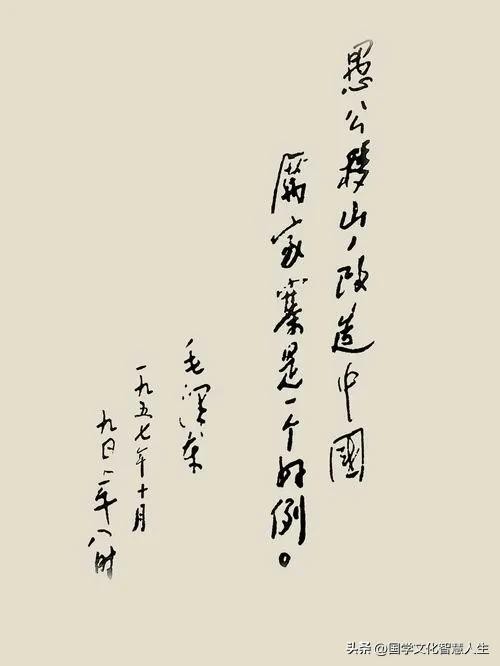 愚公移山,改造中國
厲家寨是一个好例。
毛澤東
一九五七年十月
九日上午八时
头条@国学文化智慧人生